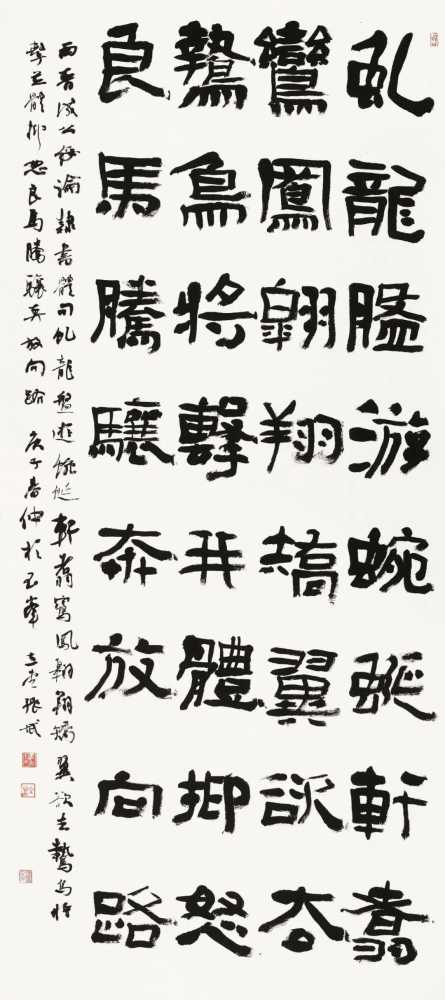 虬龍盤游蜿蜒軒翥
鸞鳳翱翔矯翼欲去
鷙鳥將擊并體抑怒
良馬騰驤奔放向路
西晉成公綏論隸書體句虬龍盤遊蜿蜒軒翥鸞鳳翱翔矯翼欲去鷙鳥將
擊並體抑怒良馬騰驤奔放向路 庚子春仲於玉峰